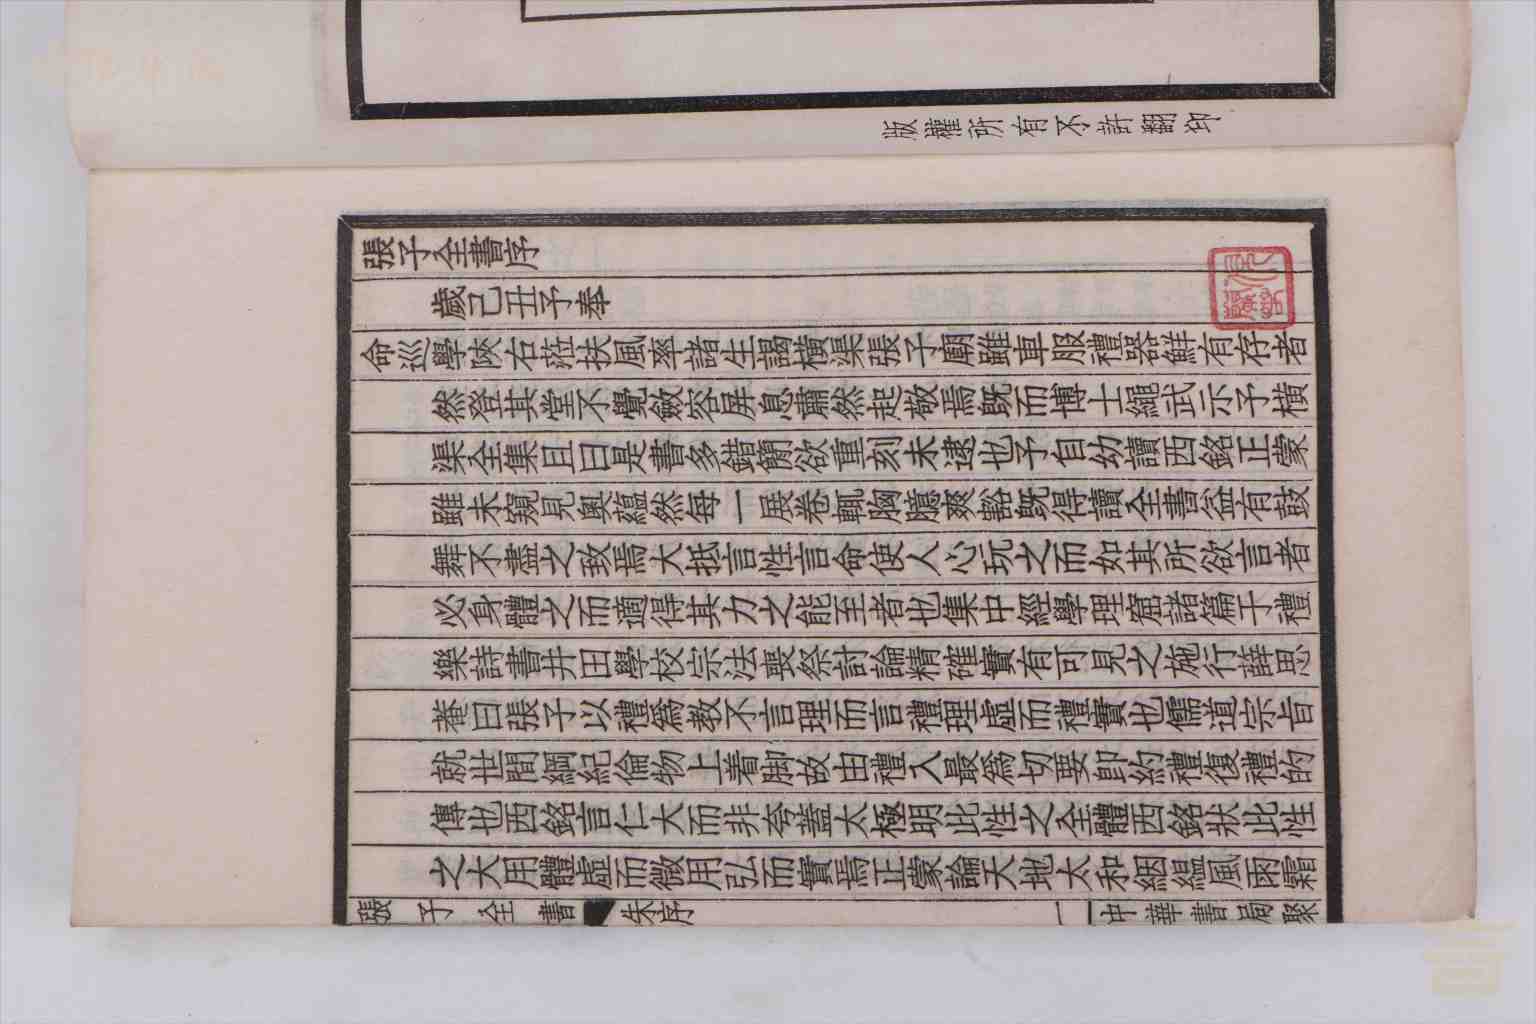 版權所有不許翻印
張子全書序
歲己丑予奉
命巡學陝右蒞扶風率諸生謁橫渠張子廟雖車服禮器鮮有存者
然登其堂不覺斂容屏息肅然起敬焉既而博士繩武示予橫
渠全集且曰是書多錯簡欲重刻未逮也予自幼讀西銘正蒙
雖未窺見奧蘊然每一展卷輒胸臆爽豁既得讀全書益有鼓
舞不盡之致焉大抵言性言命使人心玩之而如其所欲言者
必身體之而適得其力之能至者也集中經學理窟諸篇于禮
樂詩書井田學校宗法喪祭討論精確實有可見之施行薛思
菴曰張子以禮爲教不言理而言禮理虛而禮實也儒道宗旨
就世間綱紀倫物上着脚故由禮入最爲切要卽約禮復禮的
傳也西銘言仁大而非夸蓋太極明此性之全體西銘狀此性
之大用體虛而微用弘而實焉正蒙論天地太和絪緼風雨霜
張子全書 朱序 一 中華書局聚